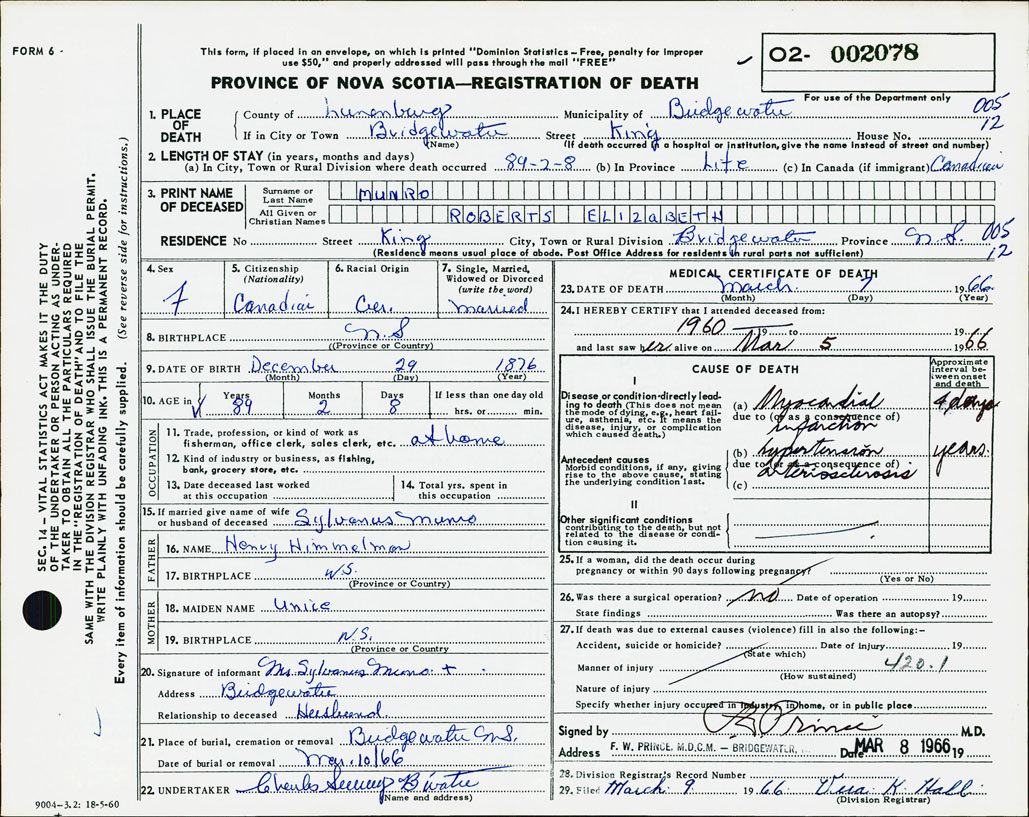 FORM 6 -
This form, if placed in an envelope, on which is printed "Dominion Statistics – Free, penalty for improper
use $50," and properly addressed will pass through the mail "FREE"
O2- 002078
PROVINCE OF NOVA SCOTIA—REGISTRATION OF DEATH
For use of the Department only
005
12
1. PLACE OF DEATH
County of Lunenburg Municipality of Bridgewater
If in City or Town Bridgewater Street King House No.
(Name) (If death occurred in a hospital or institution, give the name instead of street and number)
2. LENGTH OF STAY (in years, months and days)
(a) In City, Town or Rural Division where death occurred 89-2-8 (b) In Province Life (c) In Canada (if immigrant) Canadian
3. PRINT NAME OF DECEASED
Surname or Last Name MUNRO
All Given or Christian Names ROBERTS ELIZaBETH
RESIDENCE No Street King City, Town or Rural Division Bridgewater Province N.S. 005
12
(Residence means usual place of abode. Post Office Address for residents in rural parts not sufficient)
4. Sex F
5. Citizenship (Nationality) Canadian
6. Racial Origin Ger.
7. Single, Married, Widowed or Divorced (write the word) Married
8. BIRTHPLACE N.S
(Province or Country)
9. DATE OF BIRTH December 29 1876
(Month) (Day) (Year)
10. AGE in Years 89 Months 2 Days 8 If less than one day old hrs. or min.
OCCUPATION
11. Trade, profession, or kind of work as
fisherman, office clerk, sales clerk, etc. at home
12. Kind of industry or business, as fishing,
bank, grocery store, etc.
13. Date deceased last worked
at this occupation
14. Total yrs. spent in
this occupation
15. If married give name of wife
or husband of deceased Sylvanus Munro
FATHER
16. NAME Henry Himmelman
17. BIRTHPLACE N.S.
(Province or Country)
MOTHER
18. MAIDEN NAME Unice
19. BIRTHPLACE N.S.
(Province or Country)
20. Signature of informant Mr. Sylvanus Munro +
Address Bridgewater
Relationship to deceased Husband
21. Place of burial, cremation or removal Bridgewater N.S.
Date of burial or removal Mar. 10/66
22. UNDERTAKER Charles B'water
(Name and address)
MEDICAL CERTIFICATE OF DEATH
23. DATE OF DEATH March 7 1966
(Month) (Day) (Year)
24. I HEREBY CERTIFY that I attended deceased from:
1960 19 to 19
and last saw her alive on Mar 5 1966
CAUSE OF DEATH
Approximate interval between onset and death
I
Disease or condition directly leading to death (This does not mean
the mode of dying, e.g., heart failure, asthenia, etc. It means the
disease, injury, or complication
which caused death.)
(a) Myocardial 4 days
due to (or as a consequence of)
infarction
Antecedent causes
Morbid conditions, if any, giving
rise to the above cause, stating
the underlying condition last.
(b) hypertension years
due to (or as a consequence of)
arteriosclerosis
(c)
II
Other significant conditions
contributing to the death, but not
related to the disease or condition causing it.
25. If a woman, did the death occur during
pregnancy or within 90 days following pregnancy?
(Yes or No)
26. Was there a surgical operation? no Date of operation 19
State findings Was there an autopsy?
27. If death was due to external causes (violence) fill in also the following:–
Accident, suicide or homicide? Date of injury 19
(State which)
Manner of injury 420.1
(How sustained)
Nature of injury
Specify whether injury occurred in industry, in home, or in public place
Signed by Prince M.D.
Address F. W. PRINCE, M.D.C.M. – BRIDGEWATER, Date MAR 8 1966 19
28. Division Registrar's Record Number
29. Filed March 9 1966 Vera K. Hall
(Division Registrar)
SEC. 14 – VITAL STATISTICS ACT MAKES IT THE DUTY
OF THE UNDERTAKER OR PERSON ACTING AS UNDERTAKER TO OBTAIN ALL THE PARTICULARS REQUIRED
IN THE "REGISTRATION OF DEATH" AND TO FILE THE
SAME WITH THE DIVISION REGISTRAR WHO SHALL ISSUE THE BURIAL PERMIT.
WRITE PLAINLY WITH UNFADING INK. THIS IS A PERMANENT RECORD.
Every item of information should be carefully supplied. (See reverse side for instructions.)
9004-3.2: 18-5-60